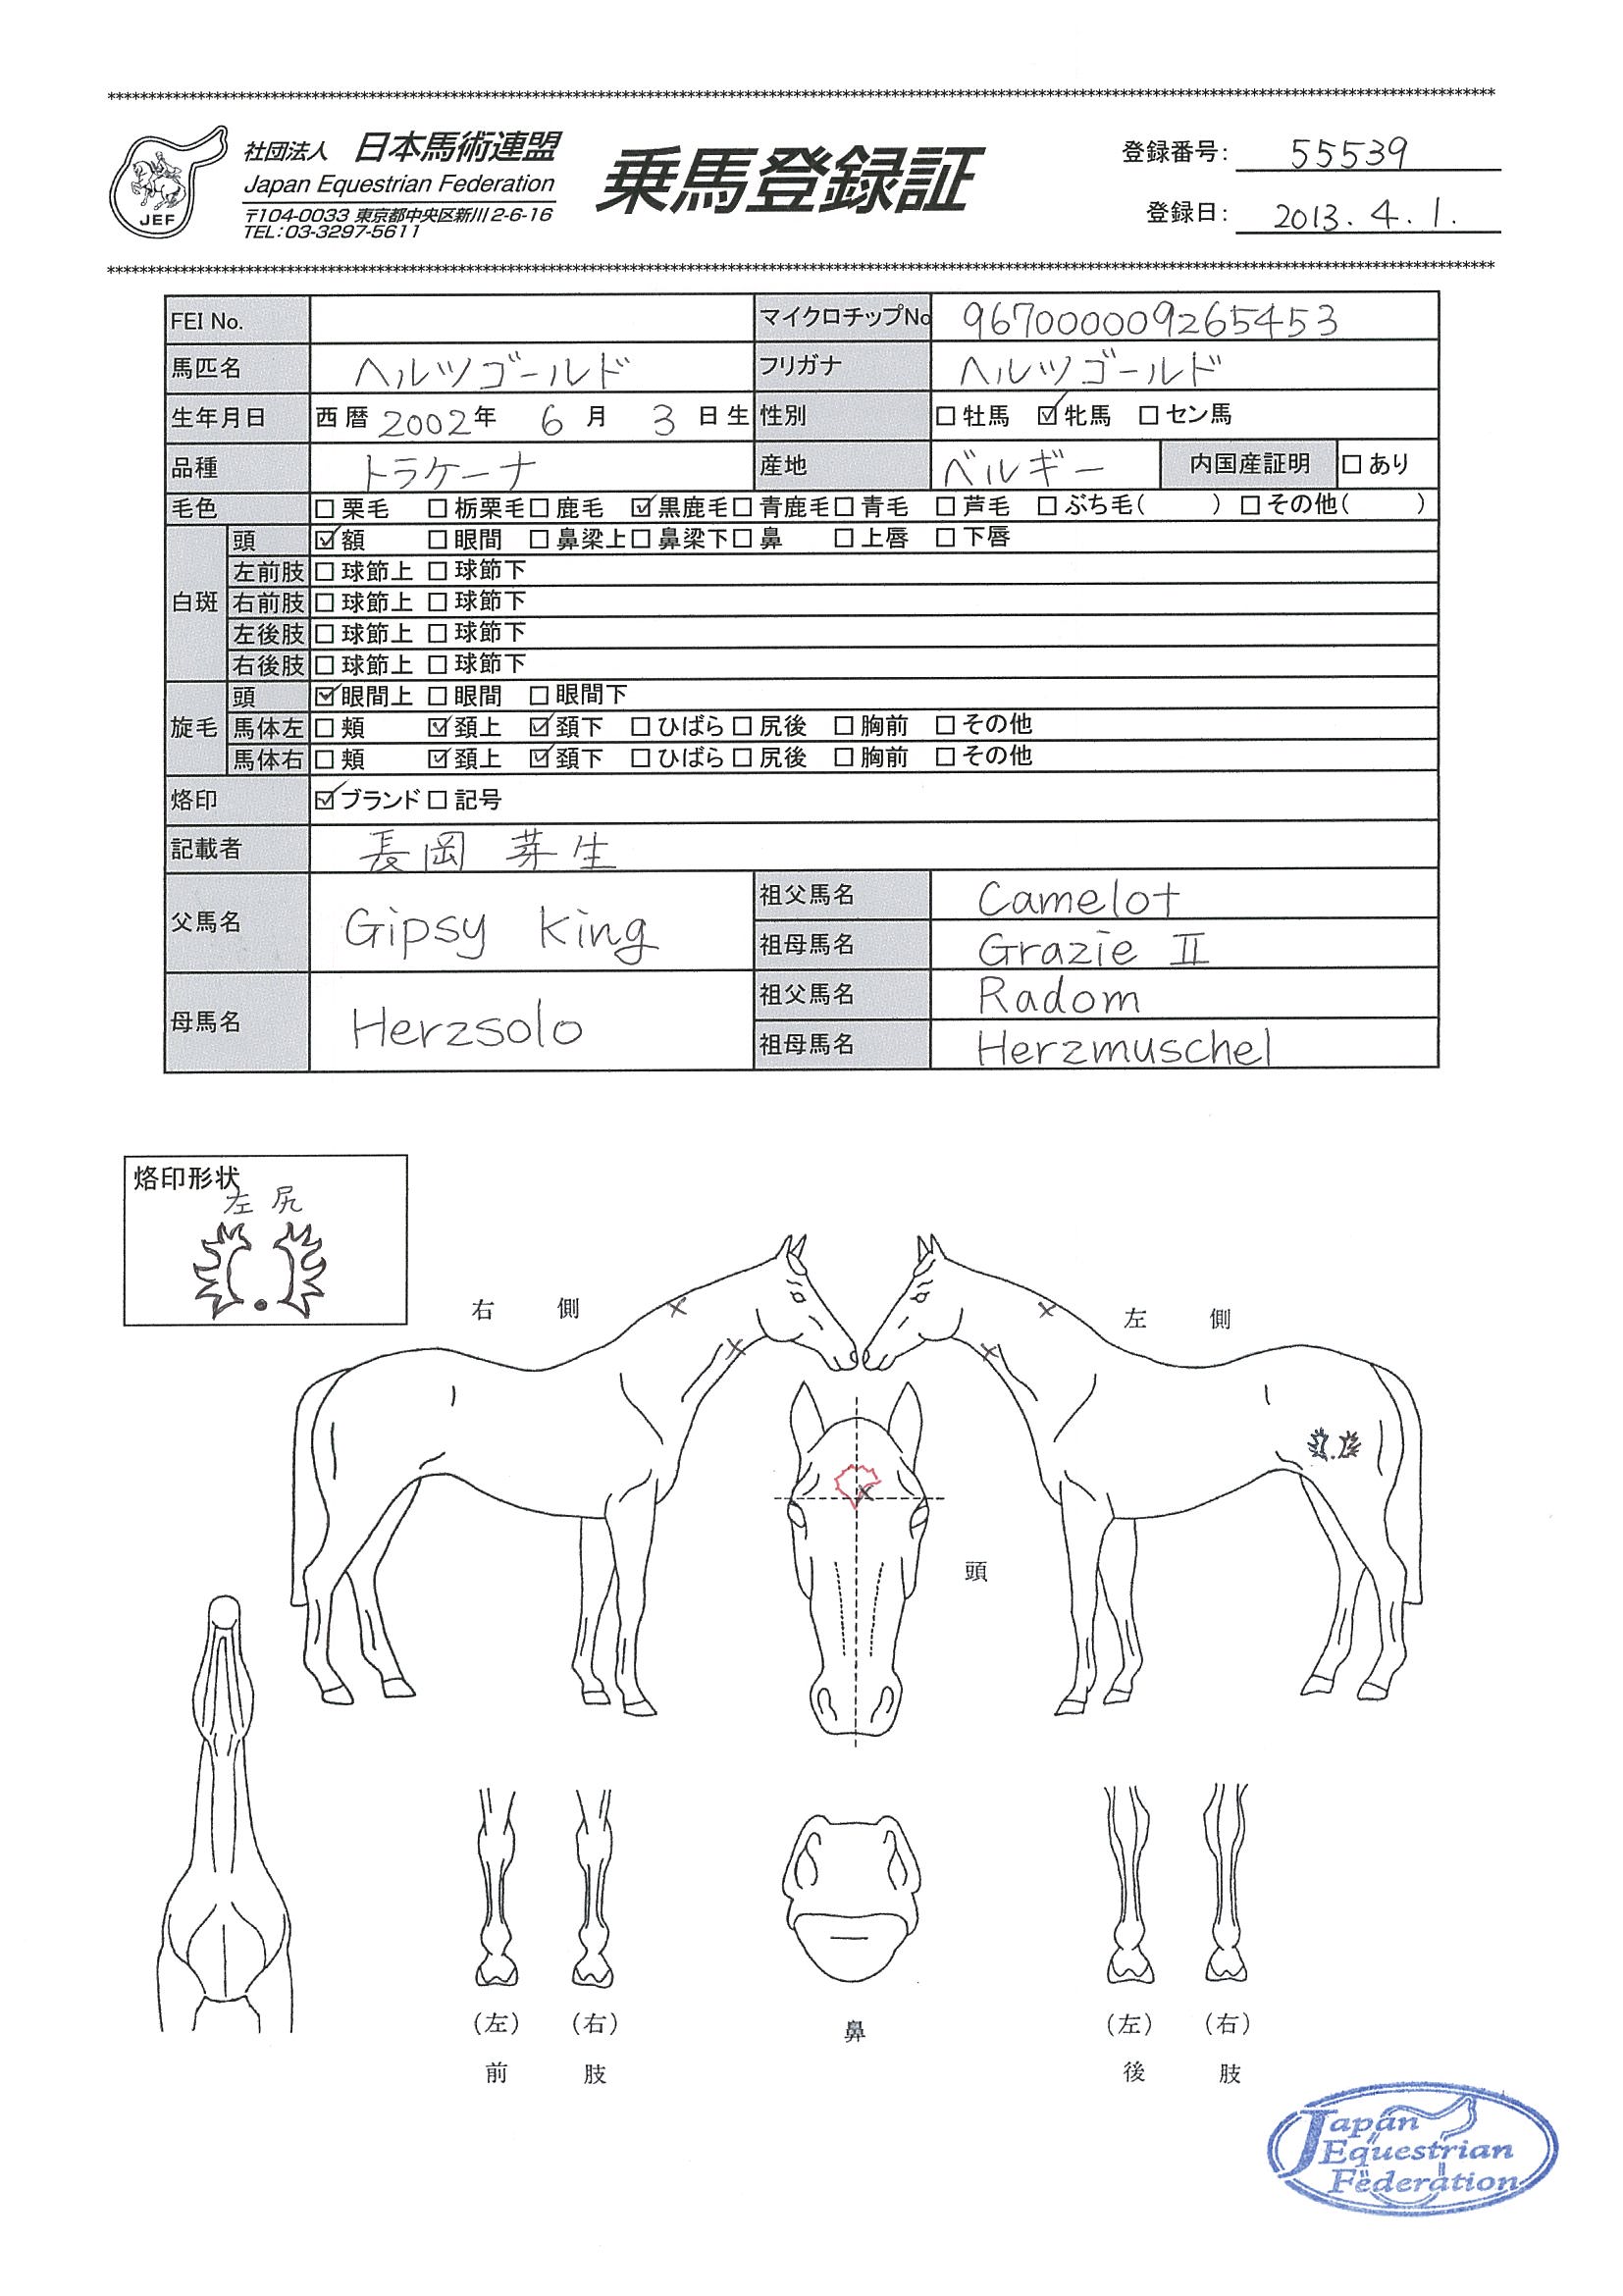 社団法人 日本馬術連盟
Japan Equestrian Federation
〒104-0033 東京都中央区新川2-6-16
TEL:03-3297-5611
JEF
乗馬登録証
登録番号: 55539
登録日: 2013.4.1.
FEI No. マイクロチップNo 967000009265453
馬匹名 ヘルツゴールド フリガナ ヘルツゴールド
生年月日 西暦 2002年 6月 3日生 性別 □牡馬 ☑牝馬 □セン馬
品種 トラケーナ 産地 ベルギー 内国産証明 □あり
毛色 □栗毛 □栃栗毛 □鹿毛 ☑黒鹿毛 □青鹿毛 □青毛 □芦毛 □ぶち毛( ) □その他( )
白斑 頭 ☑額 □眼間 □鼻梁上 □鼻梁下 □鼻 □上唇 □下唇
左前肢 □球節上 □球節下
右前肢 □球節上 □球節下
左後肢 □球節上 □球節下
右後肢 □球節上 □球節下
旋毛 頭 ☑眼間上 □眼間 □眼間下
馬体左 □頬 ☑頚上 ☑頚下 □ひばら □尻後 □胸前 □その他
馬体右 □頬 ☑頚上 ☑頚下 □ひばら □尻後 □胸前 □その他
烙印 ☑ブランド □記号
記載者 長岡 芽生
父馬名 Gipsy King 祖父馬名 Camelot
祖母馬名 Grazie II
母馬名 Herzsolo 祖父馬名 Radom
祖母馬名 Herzmuschel
烙印形状
左尻
右側 左側
頭
(左) (右) 鼻 (左) (右)
前 肢 後 肢
Japan
Equestrian
Federation